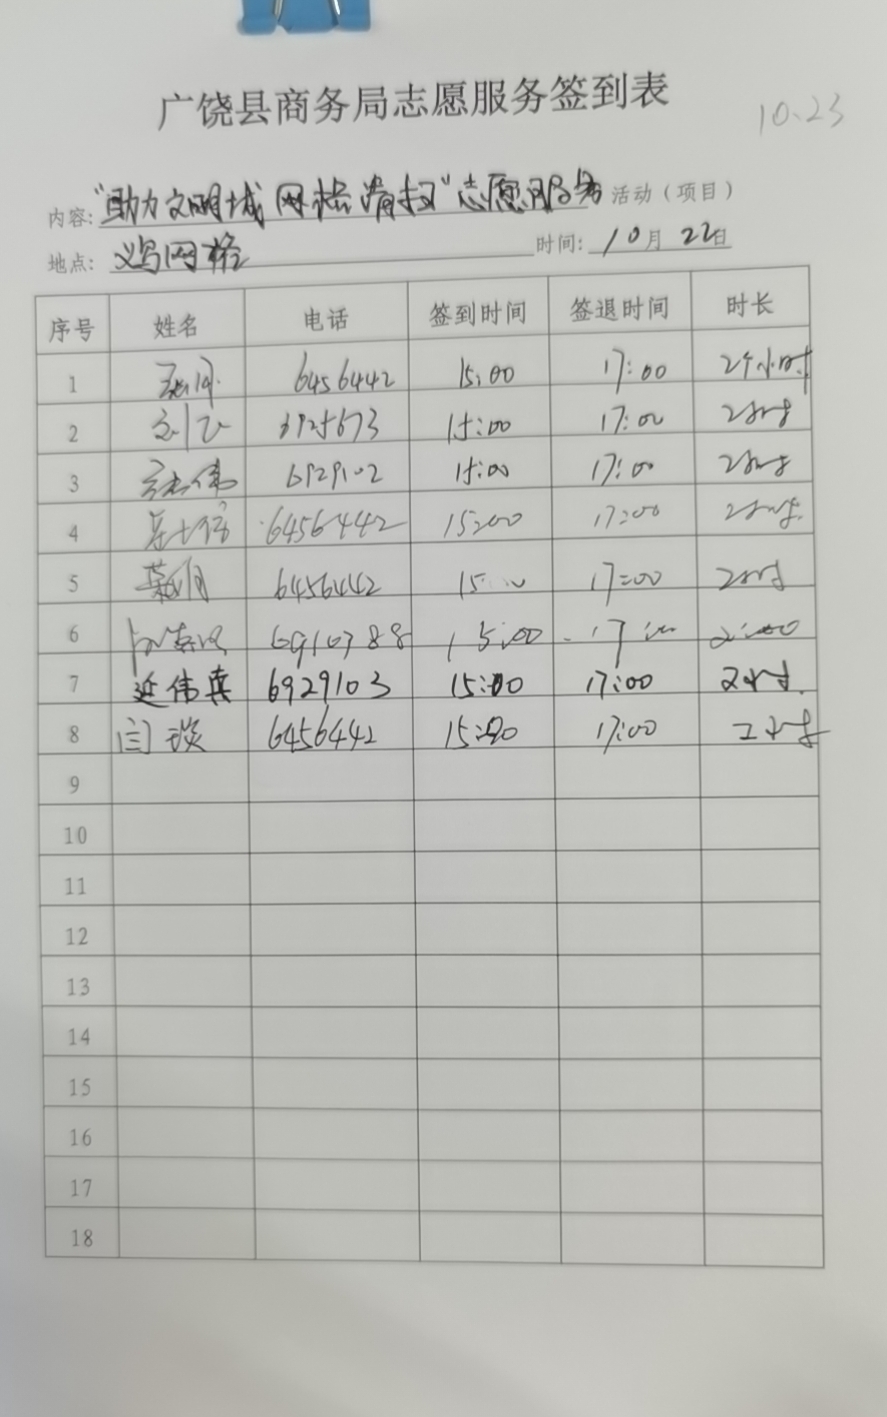 广饶县商务局志愿服务签到表
10.23
内容:"助力文明城 网格清扫"志愿服务活动（项目）
地点: 义乌网格 时间: 10月22日
序号 姓名 电话 签到时间 签退时间 时长
1 6456442 15:00 17:00 2个小时
2 6925673 15:00 17:00 2小时
3 6929102 15:00 17:00 2小时
4 6456442 15:00 17:00 2小时
5 6456442 15:00 17:00 2小时
6 6910788 15:00 17:00 2:00
7 延伟真 6929103 15:00 17:00 2小时
8 闫谈 6456442 15:00 17:00 2小时
9
10
11
12
13
14
15
16
17
18